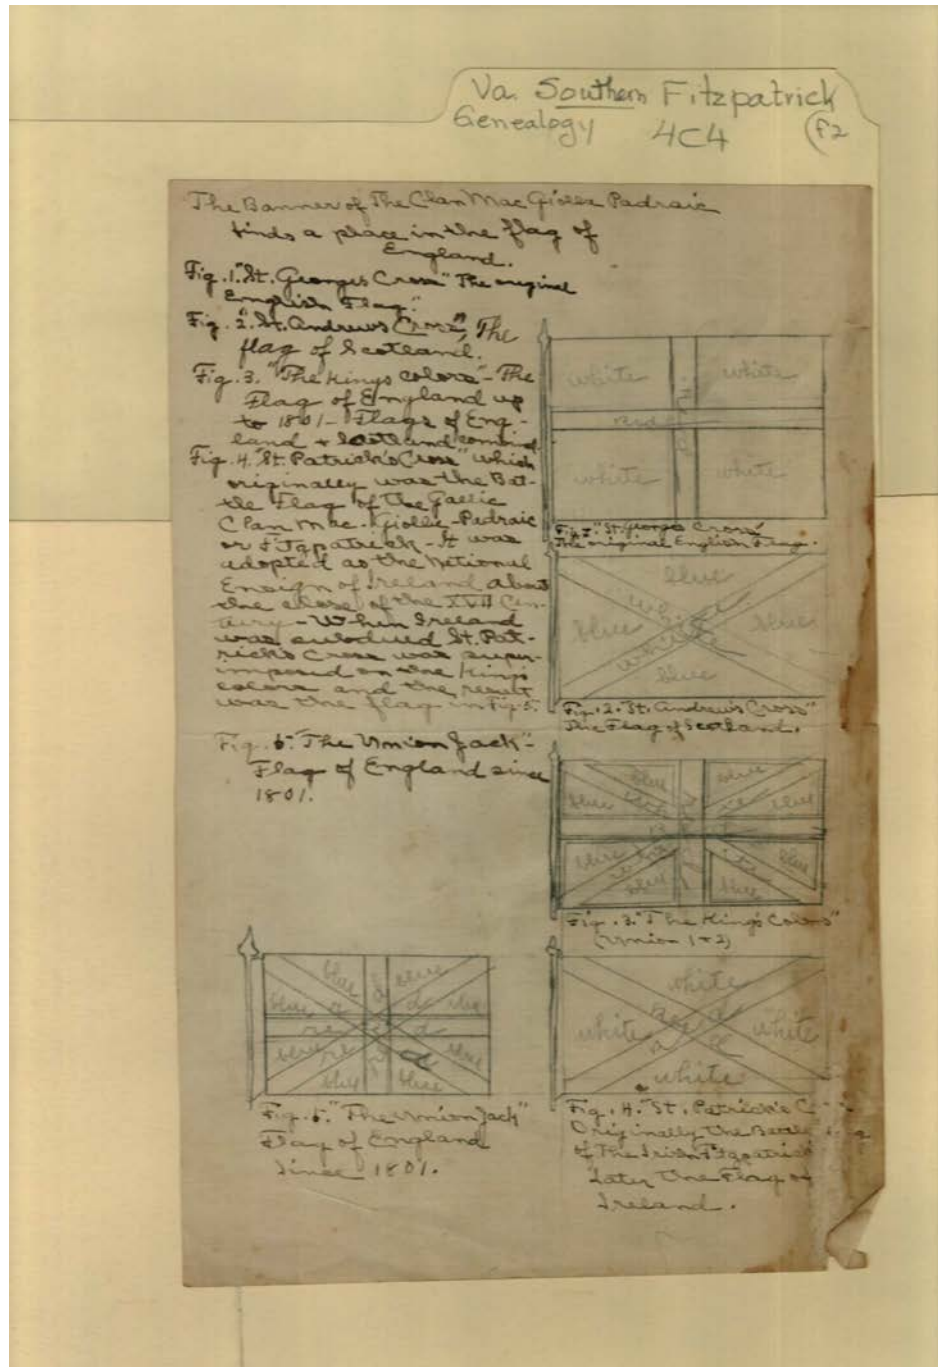 Va. Southern Fitzpatrick
Genealogy 4C4 (F2
The Banner of The Clan Mac Giolla Padraic
finds a place in the flag of
England.
Fig. 1. "St. Georges Cross" The original
English Flag."
Fig. 2. "St. Andrews Cross", The
flag of Scotland.
Fig. 3. "The Kings colors" - The
Flag of England up
to 1801 - Flags of Eng-
land + Scotland combined
Fig. 4. "St. Patrick's Cross" which
originally was the Bat-
tle Flag of the Gaelic
Clan Mac. Giolle-Padraic
or Fitzpatrick - It was
adopted as the National
Ensign of Ireland about
the close of the XVII Cen-
tury - When Ireland
was subdued St. Pat-
rick's Cross was super-
imposed on the King's
colors and the result
was the flag in Fig 5.
Fig. 5. "The Union Jack" -
Flag of England since
1801.
white white
red
white white
Fig. 1 "St. Georges Cross"
The original English Flag.
blue
white
blue blue
white
blue
Fig. 2. "St. Andrew's Cross"
The Flag of Scotland.
blue blue
blue blue
blue blue
blue blue
Fig. 3. "The King's Colors"
(Union 1+2)
blue blue
blue blue
red
blue blue
blue blue
Fig. 5. "The Union Jack"
Flag of England
Since 1801.
white
white red white
white
Fig. 4. "St. Patrick's
Originally the Battle
of The Irish Fitzpatrick
Later the Flag of
Ireland.